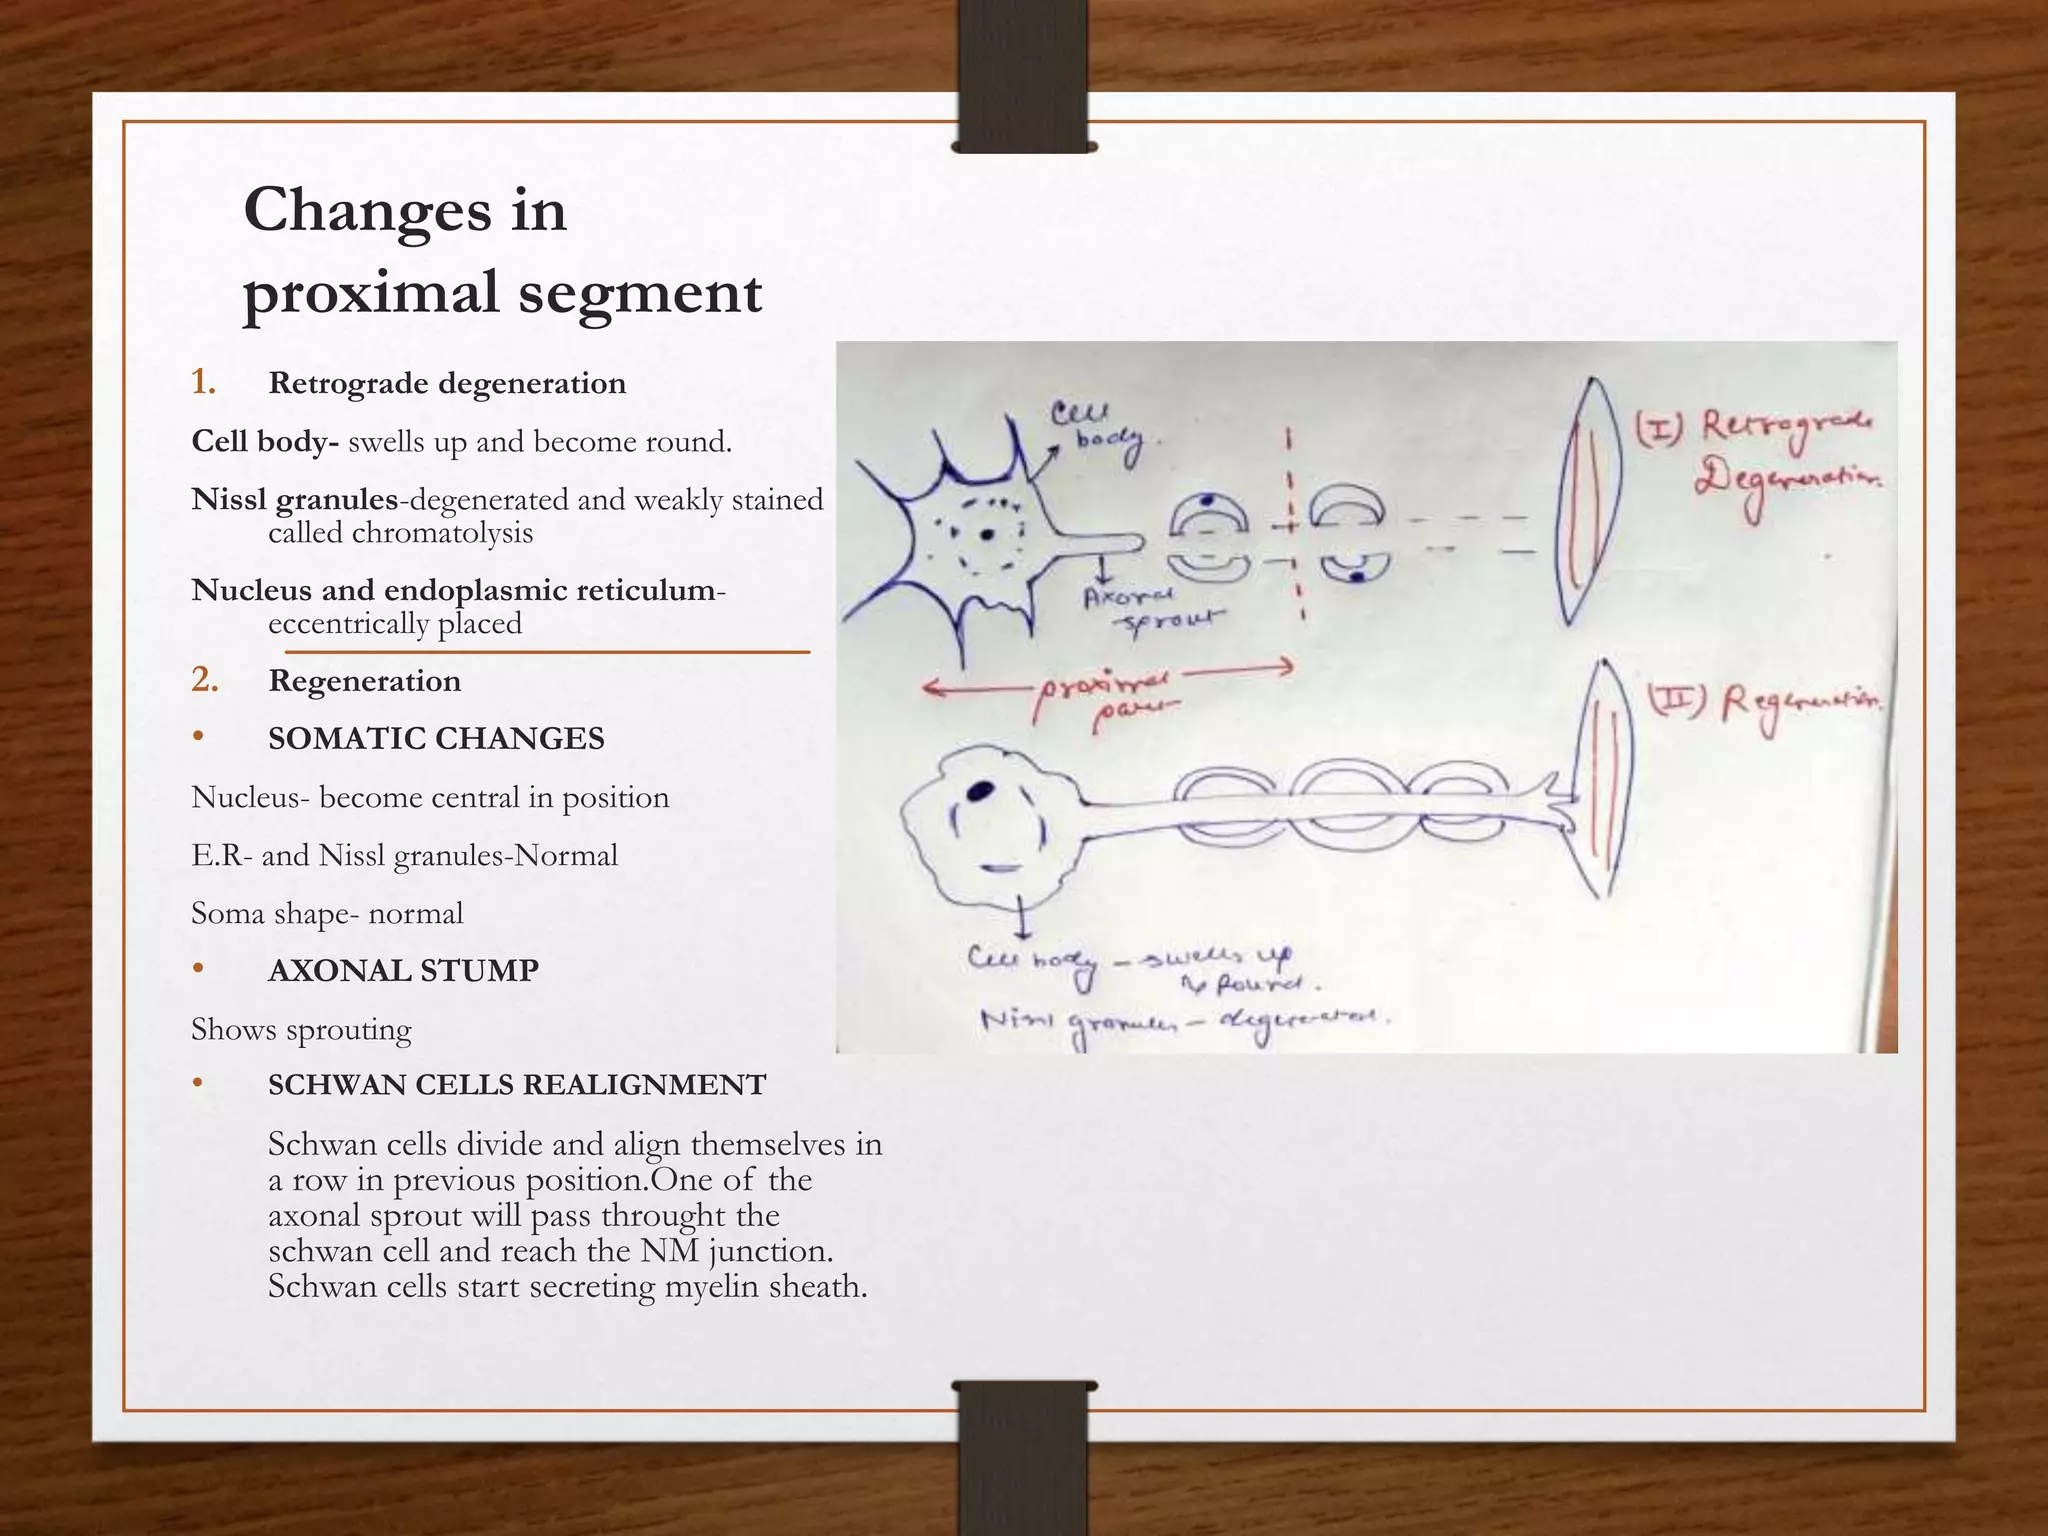 Changes in
proximal segment
1. Retrograde degeneration
Cell body- swells up and become round.
Nissl granules-degenerated and weakly stained
called chromatolysis
Nucleus and endoplasmic reticulum-
eccentrically placed
2. Regeneration
• SOMATIC CHANGES
Nucleus- become central in position
E.R- and Nissl granules-Normal
Soma shape- normal
• AXONAL STUMP
Shows sprouting
• SCHWAN CELLS REALIGNMENT
Schwan cells divide and align themselves in
a row in previous position.One of the
axonal sprout will pass throught the
schwan cell and reach the NM junction.
Schwan cells start secreting myelin sheath.
Cell
body.
(I) Retrograde
Degeneration.
Axonal
sprout
proximal
part
(II) Regeneration.
Cell body - swells up
& Round.
Nissl granules - degenerated.